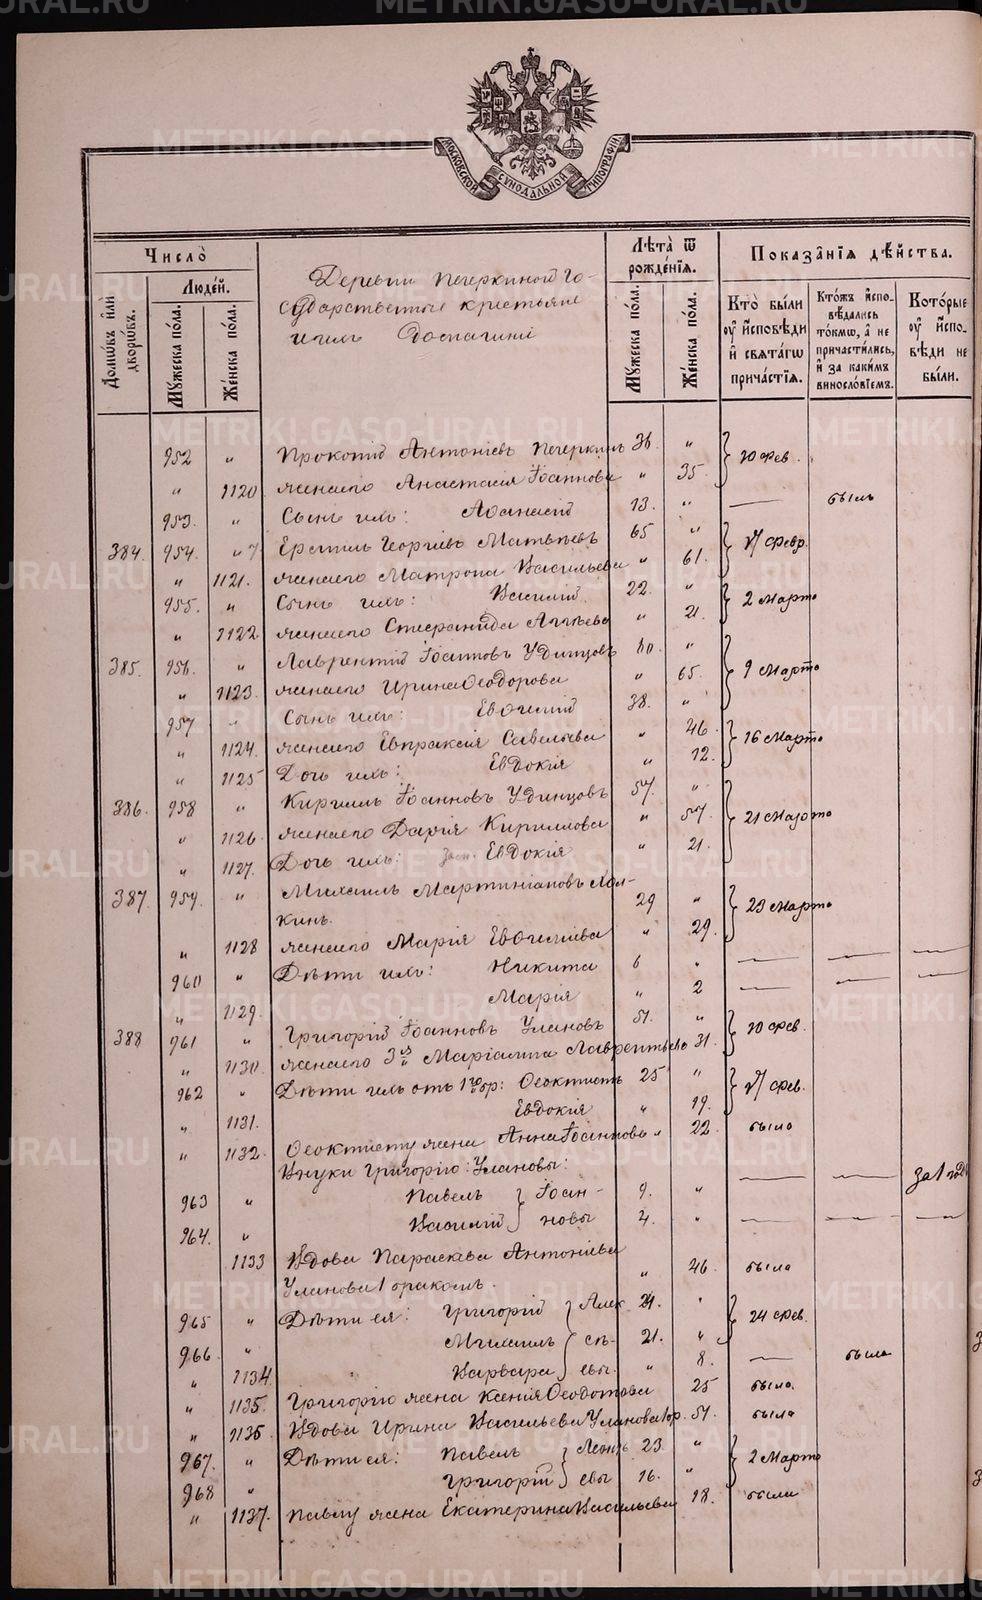 METRIKI.GASO-URAL.RU
МОСКОВСКОЙ СѴНОДАЛЬНОЙ ТИПОГРАФІИ
Число̀
Домѡ́въ и҆лѝ дворѡ́въ.
Люде́й.
Мꙋ́жеска по́ла.
Же́нска по́ла.
Деревни Печеркиной го-
сударственные крестьяне
и ихъ домашніе
Лѣ́та ѿ рожде́нїѧ.
Мꙋ́жеска по́ла.
Же́нска по́ла.
Показа̑нїѧ дѣ́йства.
Кто̀ бы́ли ᲂу҆ и҆сповѣ́ди и҆ свѧта́гѡ прича́стїѧ.
Кто́жъ и҆спо-вѣ́дались то́кмѡ, а҆ не причасти́лись, и҆ за каки́мъ винослові́емъ.
Кото́рые ᲂу҆ и҆спо-вѣ́ди не бы́ли.
952 " Прокопій Антоніевъ Печеркинъ 36. " 20 фев.
" 1120. жена его Анастасія Іоаннова " 35.
953. " Сынъ ихъ: Аѳанасій 13. " — былъ
384. 954. " Георгіевъ Матвѣевъ 65 " 17 февр.
" 1121. жена его Матрона Васильева " 61.
955. " Сынъ ихъ: Василій 22. " 2 марта
" 1122. жена его Стефанида " 21.
385. 956. " Лаврентій Іоанновъ Удинцовъ " 9 марта
" 1123. жена его Ирина Ѳеодорова " 65.
957 " Сынъ ихъ: Евѳимій 38. "
" 1124. жена его Евпраксія Савельева " 46. 16 марта
" 1125 Дочь ихъ: Евдокія " 12.
386. 958 " Кириллъ Іоанновъ Удинцовъ 57. " 21 марта
" 1126. жена его Дарія Кириллова " 57.
" 1127. Дочь ихъ: Евдокія " 21.
387. 959. " Михаилъ Мартиніановъ
кинъ. 29 " 23 марта
" 1128 жена его Марія Евѳиміева " 29.
960 " Дѣти ихъ: Никита 6 " — — —
" 1129. Марія " 2 — — —
388 961 " Григорій Іоанновъ Улановъ 51. " 20 фев.
" 1130. жена его Маріамна Лаврентьева 31.
962 " Дѣти ихъ отъ 1го бр: Ѳеоктистъ 25 " 17 фев.
" 1131. Евдокія " 19.
" 1132. Ѳеоктисту жена Анна Іоаннова " 22. была
Внуки Григорію: Улановы:
963 " Павелъ } Іоан- 9. " — — за 1 годъ
964. " Василій } новы 4. " — — —
1133 Вдова Параскева Антоніева
Уланова 1 бракомъ. " 46. была
965 " Дѣти ея: Григорій } Алек 24. " 24 фев.
966. " Михаилъ } сѣ- 21. "
" 1134. Варвара } евы. " 8. — была
" 1135. Григорію жена Ксенія Ѳеодотова 25 была.
" 1136. Вдова Ирина Васильева Уланова 1 бр. 51. была
967. " Дѣти ея: Павелъ 23. " 2 марта
968 " Григорій } евы 16. "
" 1137. Павлу жена Екатерина Васильева 18. была